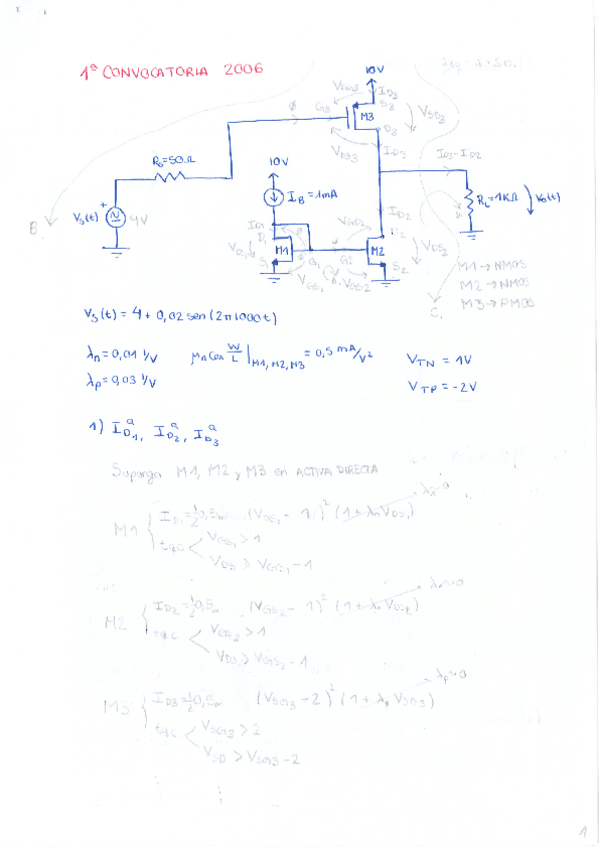 1ª CONVOCATORIA 2006
10V
S3
M3
G3
D3
VSD3
ID3
ID3-ID2
RS=50Ω
10V
IB=1mA
RL=1KΩ
Vo(t)
VS(t)
4V
B.
ID1
D1
M1
S1
G1
G2
VGS1
VGS2
VGD2
ID2
D2
M2
S2
VDS2
C.
M1→NMOS
M2→NMOS
M3→PMOS
VS(t) = 4 + 0,02 sen (2π1000t)
λn = 0,01 1/V
μnCox W/L |M1, M2, M3 = 0,5 mA/V²
VTN = 1V
λp = 0,03 1/V
VTP = -2V
1) ID1^Q, ID2^Q, ID3^Q
Supongo M1, M2 y M3 en ACTIVA DIRECTA
λn≈0
M1 { ID1 = 1/2 0,5m (VGS1 - 1)² (1 + λn VDS1)
tqc < VGS1 > 1
VDS > VGS1 - 1
λn≈0
M2 { ID2 = 1/2 0,5m (VGS2 - 1)² (1 + λn VDS2)
tqc < VGS2 > 1
VDS > VGS2 - 1
λp≈0
M3 { ID3 = 1/2 0,5m (VSG3 - 2)² (1 + λp VSD3)
tqc < VSG3 > 2
VSD > VSG3 - 2
1